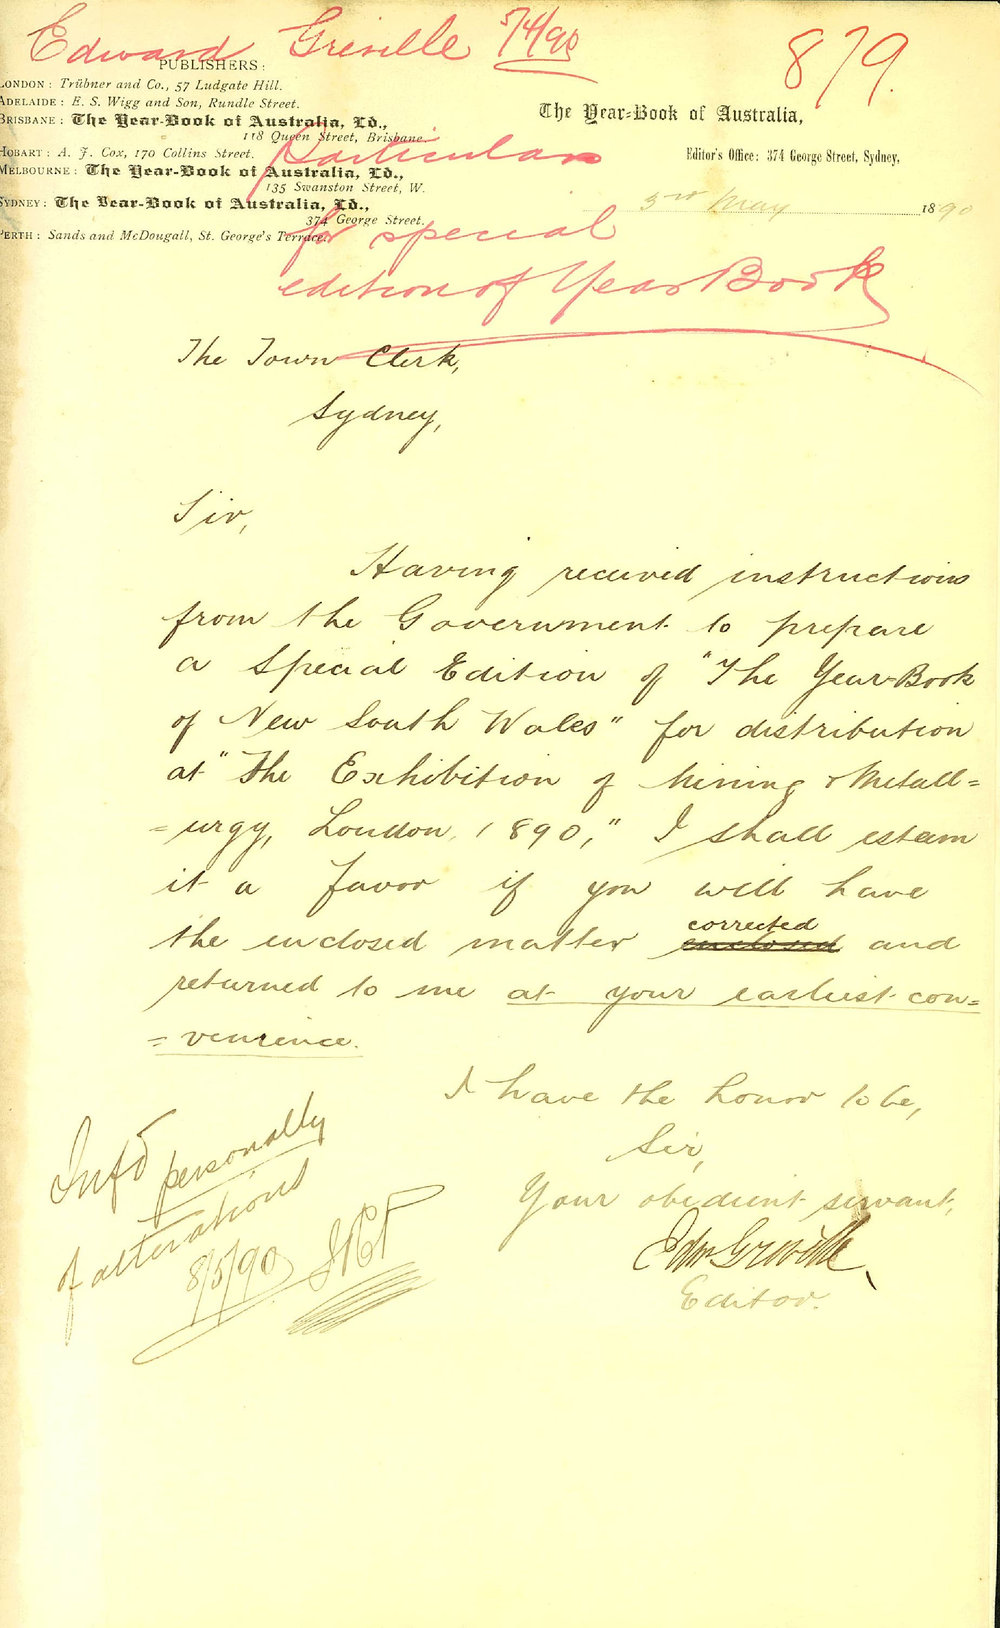 Edward Greville 5/4/90
879.
PUBLISHERS:
LONDON: Trübner and Co., 57 Ludgate Hill.
ADELAIDE: E. S. Wigg and Son, Rundle Street.
BRISBANE: The Year-Book of Australia, Ld.,
118 Queen Street, Brisbane.
HOBART: A. J. Cox, 170 Collins Street.
MELBOURNE: The Year-Book of Australia, Ld.,
135 Swanston Street, W.
SYDNEY: The Year-Book of Australia, Ld.,
374 George Street.
PERTH: Sands and McDougall, St. George's Terrace.
The Year-Book of Australia,
Editor's Office: 374 George Street, Sydney,
3rd May 1890
Particulars
for special
edition of Year Book
The Town Clerk,
Sydney,
Sir,
Having received instructions
from the Government to prepare
a Special Edition of "The Year-Book
of New South Wales" for distribution
at "The Exhibition of Mining & Metall=
=urgy, London, 1890," I shall esteem
it a favor if you will have
the enclosed matter enclosed corrected and
returned to me at your earliest con=
=venience.
I have the honor to be,
Sir,
Your obedient servant,
Edw Greville,
Editor.
Infd personally
of alterations
8/5/90